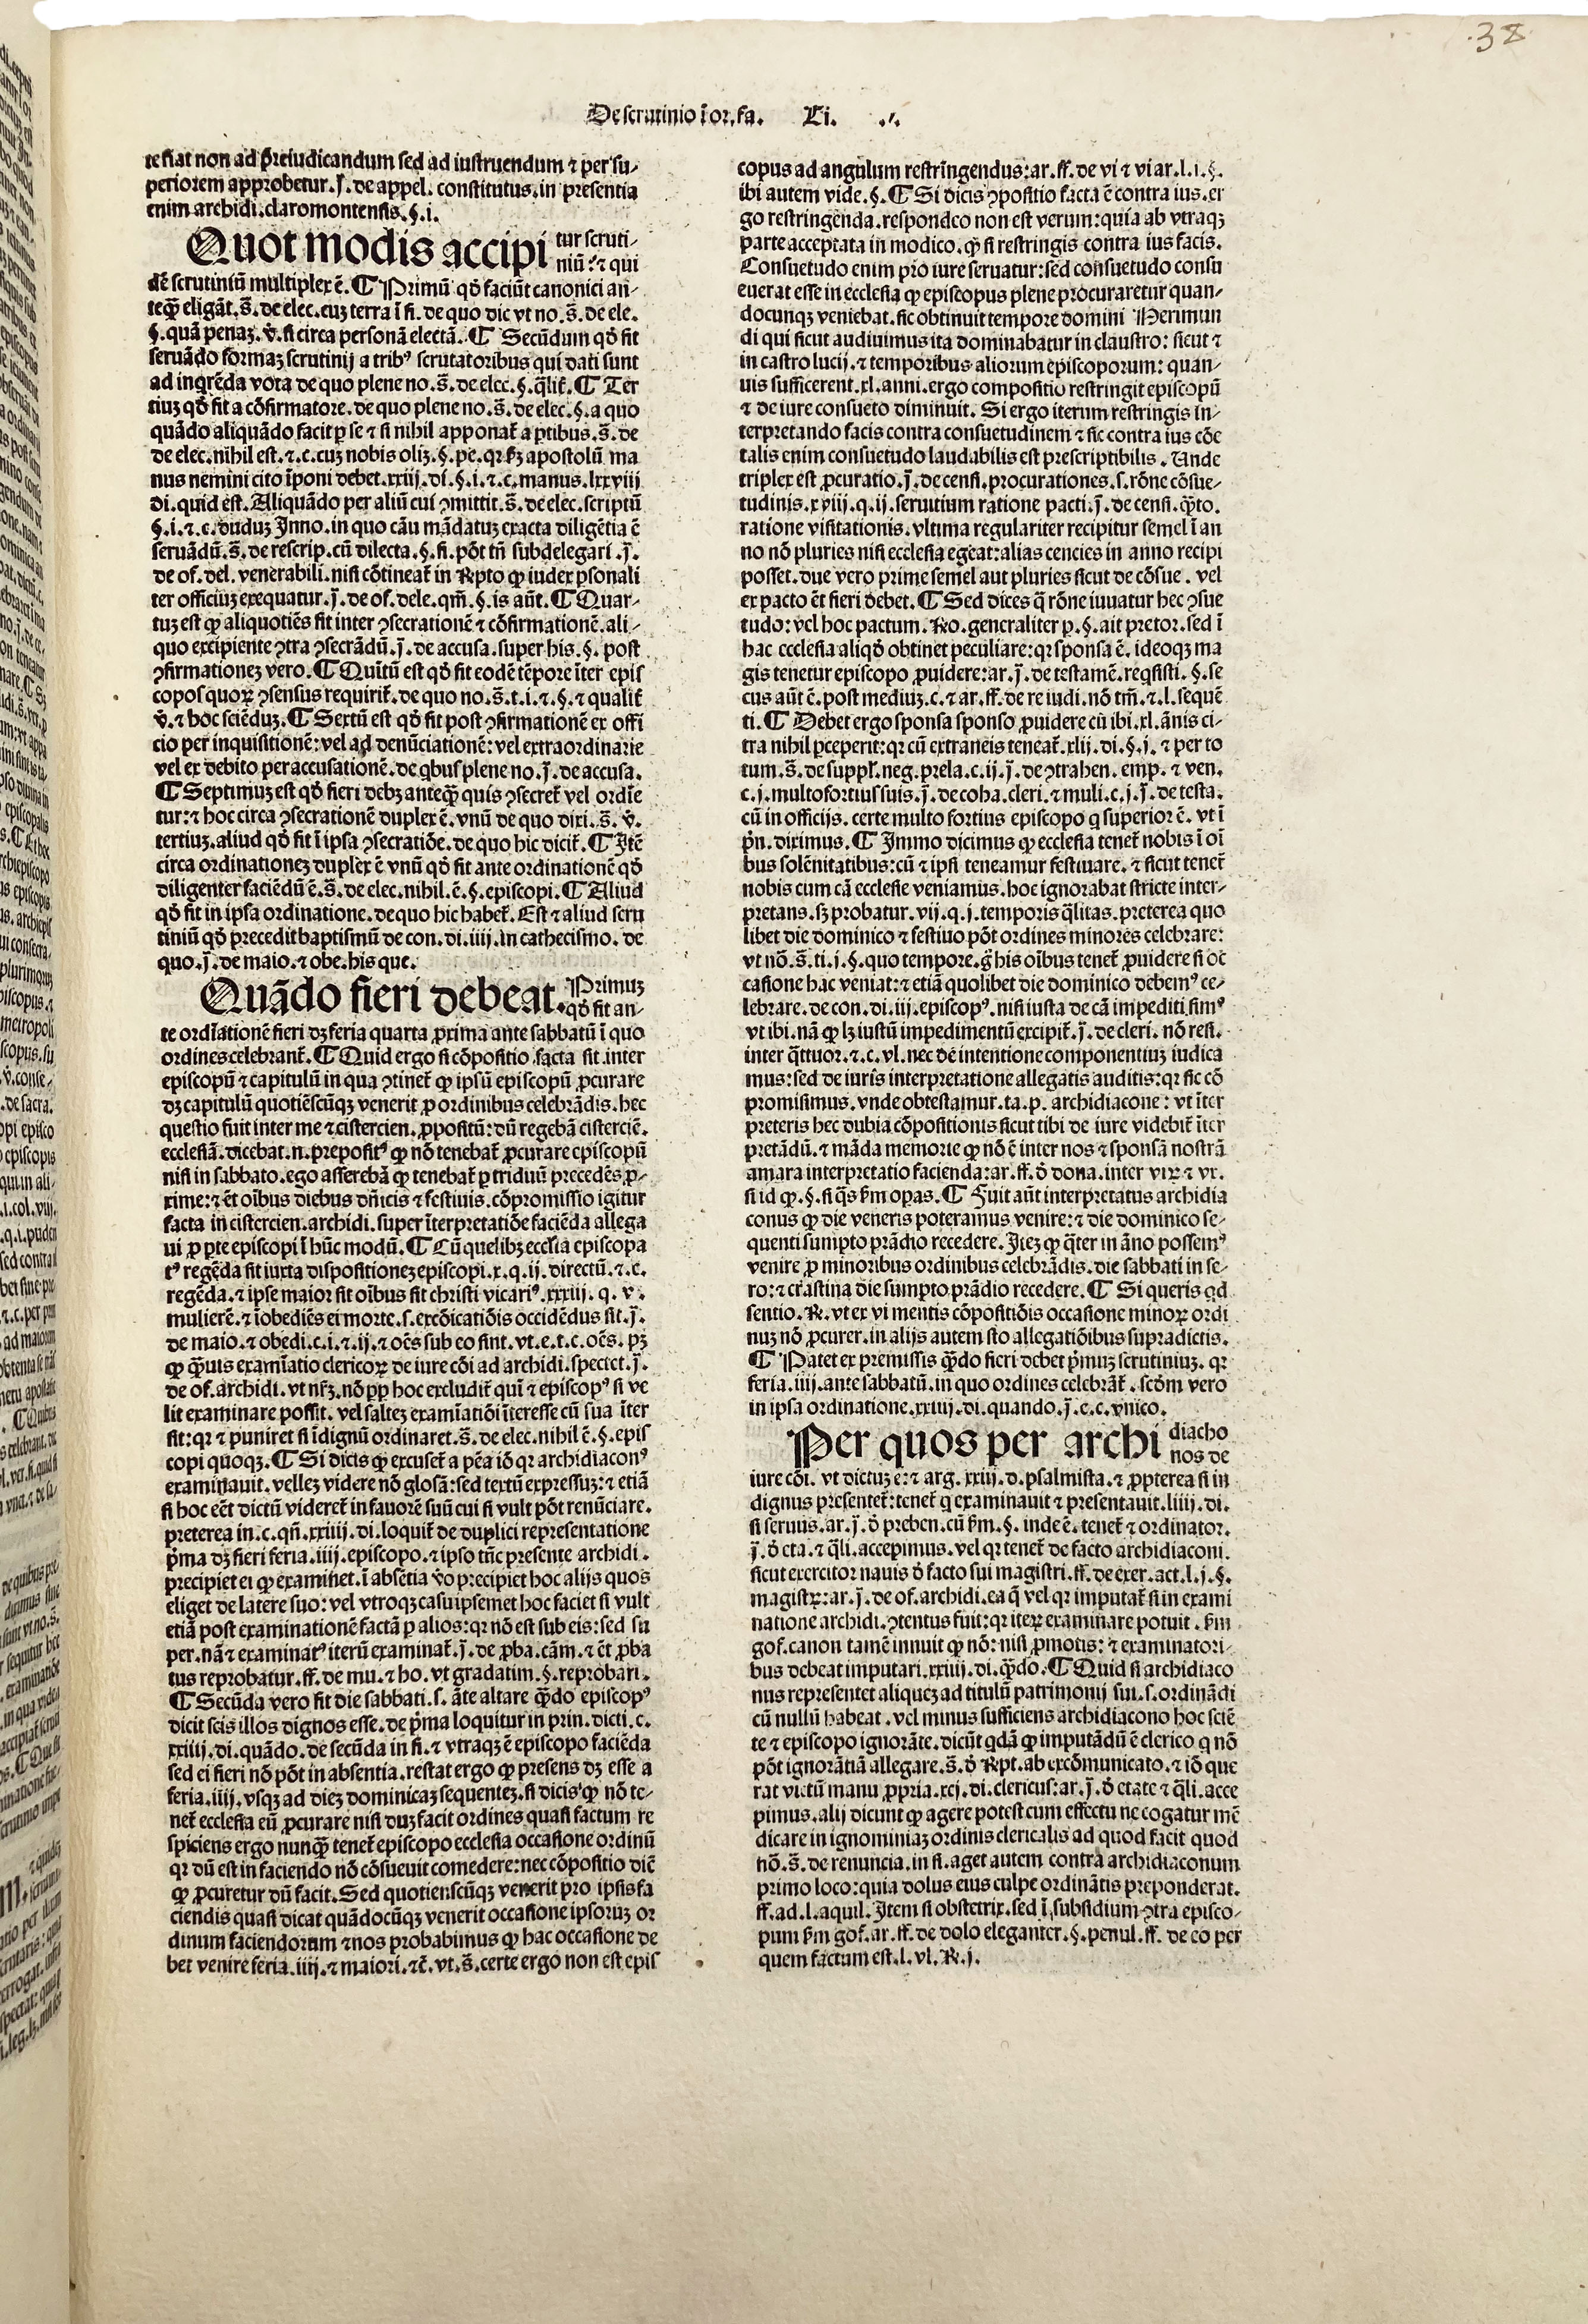 .38
De scrutinio ī or. fa. Li. .⸍.
te fiat non ad p̄reiudicandum sed ad iustruendum ⁊ per su-
periorem approbetur. ſ. de appel. constitutus. in presentia
enim archidi. claromontensis. §. i.
Quot modis accipi tur scruti-
niū: ⁊ qui
dē scrutiniū multiplex ē. ¶ Primū qď faciūt canonici an-
teqꝫ eligāt. s̄. de elec. cuȝ terra ī fi. de quo dic vt no. s̄. de ele.
§. quā penaȝ. v̄. si circa personā electā. ¶ Secūdum qď fit
seruādo formaȝ scrutinij a tribꝰ scrutatoribus qui dati sunt
ad inqrēda vota de quo plene no. s̄. de elec. §. q̄lit̄. ¶ Ter
tiuȝ qď fit a cōfirmatore. de quo plene no. s̄. de elec. §. a quo
quādo aliquādo facit ꝑ se ⁊ si nihil apponat̄ a ꝑtibus. s̄. de
de elec. nihil est. ⁊. c. cuȝ nobis oliȝ. §. pe. qꝛ ẜꝫ apostolū ma
nus nemini cito īponi debet. xxiij. di. §. i. ⁊. c. manus. lxxviij
di. quid est. Aliquādo per aliū cui ꝯmittit. s̄. de elec. scriptū
§. i. ⁊. c. duduȝ Inno. in quo cāu mādatuȝ exacta diligētia ē
seruādū. s̄. de rescrip. cū dilecta. §. fi. pōt tn̄ subdelegari. j̄.
de of. del. venerabili. nisi cōtineat̄ in Rpto ꝙ iudex ꝑsonali
ter officiuȝ exequatur. j̄. de of. dele. qm̄. §. is aūt. ¶ Quar-
tuȝ est ꝙ aliquotiēs fit inter ꝯsecrationē ⁊ cōfirmationē. ali-
quo excipiente ꝯtra ꝯsecrādū. j̄. de accusa. super his. §. post
ꝯfirmationeȝ vero. ¶ Quītū est qď fit eodē tēpore īter epis
copos quoꝝ ꝯsensus requirit̄. de quo no. s̄. t. i. ⁊. §. ⁊ qualit̄
v̄. ⁊ hoc sciēduȝ. ¶ Sextū est qď fit post ꝯfirmationē ex offi
cio per inquisitionē: vel ad denūciationē: vel extraordinarie
vel ex debito per accusationē. de qbus plene no. j̄. de accusa.
¶ Septimuȝ est qď fieri debȝ anteqꝫ quis ꝯsecret̄ vel ordīe
tur: ⁊ hoc circa ꝯsecrationē duplex ē. vnū de quo dixi. s̄. v̄.
tertius. aliud qď fit ī ipsa ꝯsecratiōe. de quo hic dicit̄. ¶ Itē
circa ordinationeȝ duplex ē vnū qď fit ante ordinationē qď
diligenter faciēdū ē. s̄. de elec. nihil. ē. §. episcopi. ¶ Aliud
qď fit in ipsa ordinatione. de quo hic habet̄. Est ⁊ aliud scru
tiniū qď precedit baptismū de con. di. iiij. in cathecismo. de
quo. j̄. de maio. ⁊ obe. his que.
Quādo fieri debeat. Primuȝ
qď fit an-
te ordīationē fieri dȝ feria quarta ꝓxima ante sabbatū ī quo
ordines celebrant̄. ¶ Quid ergo si cōpositio facta sit inter
episcopū ⁊ capitulū in qua ꝯtinet̄ ꝙ ipsū episcopū ꝓcurare
dȝ capitulū quotiēscūqȝ venerit ꝓ ordinibus celebrādis. hec
questio fuit inter me ⁊ cistercien. ꝓpositū: dū regebā cisterciē.
ecclesiā. dicebat. n. prepositꝰ ꝙ nō tenebat̄ ꝓcurare episcopū
nisi in sabbato. ego asserebā ꝙ tenebat̄ ꝑ triduū precedēs ꝓ-
xime: ⁊ ēt oībus diebus dn̄icis ⁊ festiuis. cōpromissio igitur
facta in cistercien. archidi. super īterpretatiōe faciēda allega
ui ꝓ ꝑte episcopi ī hūc modū. ¶ Cū quelibȝ ecclīa episcopa
tꝰ regēda sit iuxta dispositioneȝ episcopi. x. q. ij. directū. ⁊. c.
regēda. ⁊ ipse maior sit oībus sit christi vicariꝰ. xxxiij. q. v.
mulierē. ⁊ īobediēs ei morte. s. excōicatiōis occidēdus sit. j̄.
de maio. ⁊ obedi. c. i. ⁊. ij. ⁊ oēs sub eo sint. vt. e. t. c. oēs. pȝ
ꝙ q̄uis examīatio clericoꝝ de iure cōi ad archidi. spectet. j̄.
de of. archidi. vt nr̄ȝ. nō ꝓp hoc excludit̄ quī ⁊ episcopꝰ si ve
lit examinare possit. vel salteȝ examīatiōi īteresse cū sua īter
sit: qꝛ ⁊ puniret si īdignū ordinaret. s̄. de elec. nihil ē. §. epis
copi quoqȝ. ¶ Si dicis ꝙ excuset̄ a pēa iō qꝛ archidiaconꝰ
examinauit. velleȝ videre nō glosā: sed textū expressuȝ: ⁊ etiā
si hoc eēt dictū videret̄ in fauorē suū cui si vult pōt renūciare.
preterea in. c. qn̄. xxiiij. di. loquit̄ de duplici representatione
p̄ma dȝ fieri feria. iiij. episcopo. ⁊ ipso tūc presente archidi.
precipiet ei ꝙ examinet. ī absētia v̄o precipiet hoc alijs quos
eliget de latere suo: vel vtroqȝ casu ipsemet hoc faciet si vult
etiā post examinationē factā ꝑ alios: qꝛ nō est sub eis: sed su
per. nā ⁊ examinatꝰ iterū examinat̄. j̄. de ꝓba. cām. ⁊ ēt ꝓba
tus reprobatur. ff. de mu. ⁊ ho. vt gradatim. §. reprobari.
¶ Secūda vero fit die sabbati. s. āte altare qn̄do episcopꝰ
dicit scis illos dignos esse. de p̄ma loquitur in prin. dicti. c.
xxiiij. di. quādo. de secūda in fi. ⁊ vtraqȝ ē episcopo faciēda
sed ei fieri nō pōt in absentia. restat ergo ꝙ presens dȝ esse a
feria. iiij. vsqȝ ad dieȝ dominicaȝ sequenteȝ. si dicis ꝙ nō te-
net̄ ecclesia eū ꝓcurare nisi duȝ facit ordines quasi factum re
spiciens ergo nunqꝫ tenet̄ episcopo ecclesia occasione ordinū
qꝛ dū est in faciendo nō cōsueuit comedere: nec cōpositio dicē
ꝙ ꝓcuretur dū facit. Sed quotienscūqȝ venerit pro ipsis fa
ciendis quasi dicat quādocūqȝ venerit occasione ipsoruȝ or
dinum faciendorum ⁊ nos probabimus ꝙ hac occasione de
bet venire feria. iiij. ⁊ maiori. ⁊c̄. vt. s̄. certe ergo non est epis
copus ad angulum restrīngendus: ar. ff. de vi ⁊ vi ar. l. i. §.
ibi autem vide. §. ¶ Si dicis ꝯpositio facta ē contra ius. er
go restringēda. respondeo non est verum: quia ab vtraqȝ
parte acceptata in modico. ꝙ si restringis contra ius facis.
Consuetudo enim pro iure seruatur: sed consuetudo consu
euerat esse in ecclesia ꝙ episcopus plene procuraretur quan-
docunqȝ veniebat. sic obtinuit tempore domini Perimun
di qui sicut audiuimus ita dominabatur in claustro: sicut ⁊
in castro lucij. ⁊ temporibus aliorum episcoporum: quan-
uis sufficerent. xl. anni. ergo compositio restringit episcopū
⁊ de iure consueto diminuit. Si ergo iterum restringis in-
terpretando facis contra consuetudinem ⁊ sic contra ius cōe
talis enim consuetudo laudabilis est prescriptibilis. Unde
triplex est ꝓcuratio. j̄. de censi. procurationes. s. rōne cōsue-
tudinis. xviij. q. ij. seruitium ratione pacti. j̄. de censi. q̄to.
ratione visitationis. vltima regulariter recipitur semel ī an
no nō pluries nisi ecclesia egeat: alias cencies in anno recipi
posset. due vero prime semel aut pluries sicut de cōsue. vel
ex pacto ēt fieri debet. ¶ Sed dices q̄ rōne iuuatur hec ꝯsue
tudo: vel hoc pactum. Ro. generaliter p. §. ait pretor. sed ī
hac ecclesia aliqď obtinet peculiare: qꝛ sponsa ē. ideoqȝ ma
gis tenetur episcopo ꝓuidere: ar. j̄. de testamē. reqsisti. §. se
cus aūt ē. post mediuȝ. c. ⁊ ar. ff. de re iudi. nō tm̄. ⁊. l. sequē
ti. ¶ Debet ergo sponsa sponso ꝓuidere cū ibi. xl. ānis ci-
tra nihil ꝑceperit: qꝛ cū extraneis teneat̄. xlij. di. §. j. ⁊ per to
tum. s̄. de suppl̄. neg. prela. c. ij. j̄. de ꝯtrahen. emp. ⁊ ven.
c. j. multo fortius suis. j̄. de coha. cleri. ⁊ muli. c. j. j̄. de testa.
cū in officijs. certe multo fortius episcopo q superior ē. vt ī
pn̄. diximus. ¶ Immo dicimus ꝙ ecclesia tenet̄ nobis ī oī
bus solēnitatibus: cū ⁊ ipsi teneamur festiuare. ⁊ sicut tenet̄
nobis cum cā ecclesie veniamus. hoc ignorabat stricte inter-
pretans. sȝ probatur. vij. q. j. temporis q̄litas. preterea quo
libet die dominico ⁊ festiuo pōt ordines minores celebrare:
vt nō. s̄. ti. j. §. quo tempore. ḡ his oībus tenet̄ ꝓuidere si oc
casione hac veniat: ⁊ etiā quolibet die dominico debemꝰ ce-
lebrare. de con. di. iij. episcopꝰ. nisi iusta de cā impediti simꝰ
vt ibi. nā ꝙ lȝ iustū impedimentū excipit̄. j̄. de cleri. nō resi.
inter q̄ttuor. ⁊. c. vl. nec dē intentione componentiuȝ iudica
mus: sed de iuris interpretatione allegatis auditis: qꝛ sic cō
promisimus. vnde obtestamur. ta. p. archidiacone: vt īter
preteris hec dubia cōpositionis sicut tibi de iure videbit̄ iter
pretādū. ⁊ māda memorie ꝙ nō ē inter nos ⁊ sponsā nostrā
amara interpretatio facienda: ar. ff. ď dona. inter virꝫ ⁊ vx.
si id ꝙ. §. si q̄s ẜm opas. ¶ Fuit aūt interpretatus archidia
conus ꝙ die veneris poteramus venire: ⁊ die dominico se-
quenti sumpto prādio recedere. Iteȝ ꝙ q̄ter in āno possemꝰ
venire ꝓ minoribus ordinibus celebrādis. die sabbati in se-
ro: ⁊ crastina die sumpto prādio recedere. ¶ Si queris qd
sentio. R. vt ex vi mentis cōpositiōis occasione minoꝝ ordi
nuȝ nō ꝓcurer. in alijs autem sto allegatiōibus supradictis.
¶ Patet ex premissis qn̄do fieri debet p̄muȝ scrutiniuȝ. qꝛ
feria. iiij. ante sabbatū. in quo ordines celebrāt̄. scd̄m vero
in ipsa ordinatione. xxiiij. di. quando. j̄. e. c. vnico.
Per quos per archi diacho
nos de
iure cōi. vt dictuȝ e: ⁊ arg. xxiij. d. psalmista. ⁊ ꝓpterea si in
dignus presentet̄: tenet̄ q examinauit ⁊ presentauit. liiij. di.
si seruus. ar. j̄. ď preben. cū ẜm. §. inde ē. tenet̄ ⁊ ordinator.
j̄. ď eta. ⁊ q̄li. accepimus. vel qꝛ tenet̄ de facto archidiaconi.
sicut exercitor nauis ď facto sui magistri. ff. de exer. act. l. j. §.
magistꝝ: ar. j̄. de of. archidi. ea q̄ vel qꝛ imputat̄ si in exami
natione archidi. ꝯtentus fuit: qꝛ iteꝝ examinare potuit. ẜm
gof. canon tamē innuit ꝙ nō: nisi ꝓmotis: ⁊ examinatori-
bus debeat imputari. xxiiij. di. qn̄do. ¶ Quid si archidiaco
nus representet aliqueȝ ad titulū patrimonij sui. s. ordinādi
cū nullū habeat. vel minus sufficiens archidiacono hoc sciē
te ⁊ episcopo ignorāte. dicūt qdā ꝙ imputādū ē clerico q nō
pōt ignorātiā allegare. s̄. ď Rpt. ab excōmunicato. ⁊ iō que
rat victū manu ꝓpria. xci. di. clericus: ar. j̄. ď etate ⁊ q̄li. acce
pimus. alij dicunt ꝙ agere potest cum effectu ne cogatur mē
dicare in ignominiaȝ ordinis clericalis ad quod facit quod
nō. s̄. de renuncia. in fi. aget autem contra archidiaconum
primo loco: quia dolus eius culpe ordinātis preponderat.
ff. ad. l. aquil. Item si obstetrix. sed ī subsidium ꝯtra episco-
pum ẜm gof. ar. ff. de dolo eleganter. §. penul. ff. de eo per
quem factum est. l. vl. R. j.